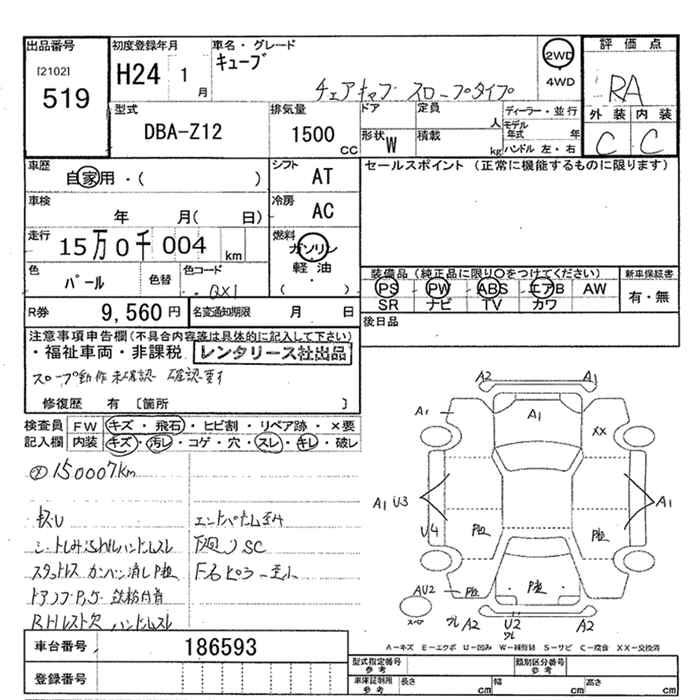 出品番号
[2102]
519
初度登録年月
H24 1
月
車名・グレード
キューブ
チェアキャブ スロープタイプ
2WD
4WD
評価点
RA
外装 内装
C C
型式
DBA-Z12
排気量
1500
CC
ドア
定員
人
形状
W
積載
kg
ディーラー・並行
モデル年式 年
ハンドル 左・右
車歴
自家用・( )
シフト
AT
セールスポイント (正常に機能するものに限ります)
車検
年 月( 日)
冷房
AC
走行
15万0千004 km
燃料
ガソリン
軽油
色
パール
色替
色コード
QX1
装備品 (純正品に限り○をつけてください)
新車保証書
PS PW ABS エアB AW
SR ナビ TV カワ
有・無
R券
9,560円
名変通知期限
月 日
後日品
注意事項申告欄(不具合内容等は具体的に記入して下さい)
・福祉車両・非課税 レンタリース社出品
スロープ動作未確認 確認要す
修復歴 有 [箇所 ]
検査員
記入欄
FW キズ・飛石・ヒビ割・リペア跡・×要
内装 キズ・汚れ・コゲ・穴・スレ・キレ・破レ
150007km
下廻りSC
車台番号
186593
登録番号
A2 A1
A1 A1 XX
A1 U3 A1
U4
AU2
A2 U2 A2
A=キズ E=エクボ U=凹み W=補修跡 S=サビ C=腐食 XX=交換済
型式指定番号
参考
類別区分番号
参考
車庫証明用
参考
長さ cm
幅 cm
高さ cm